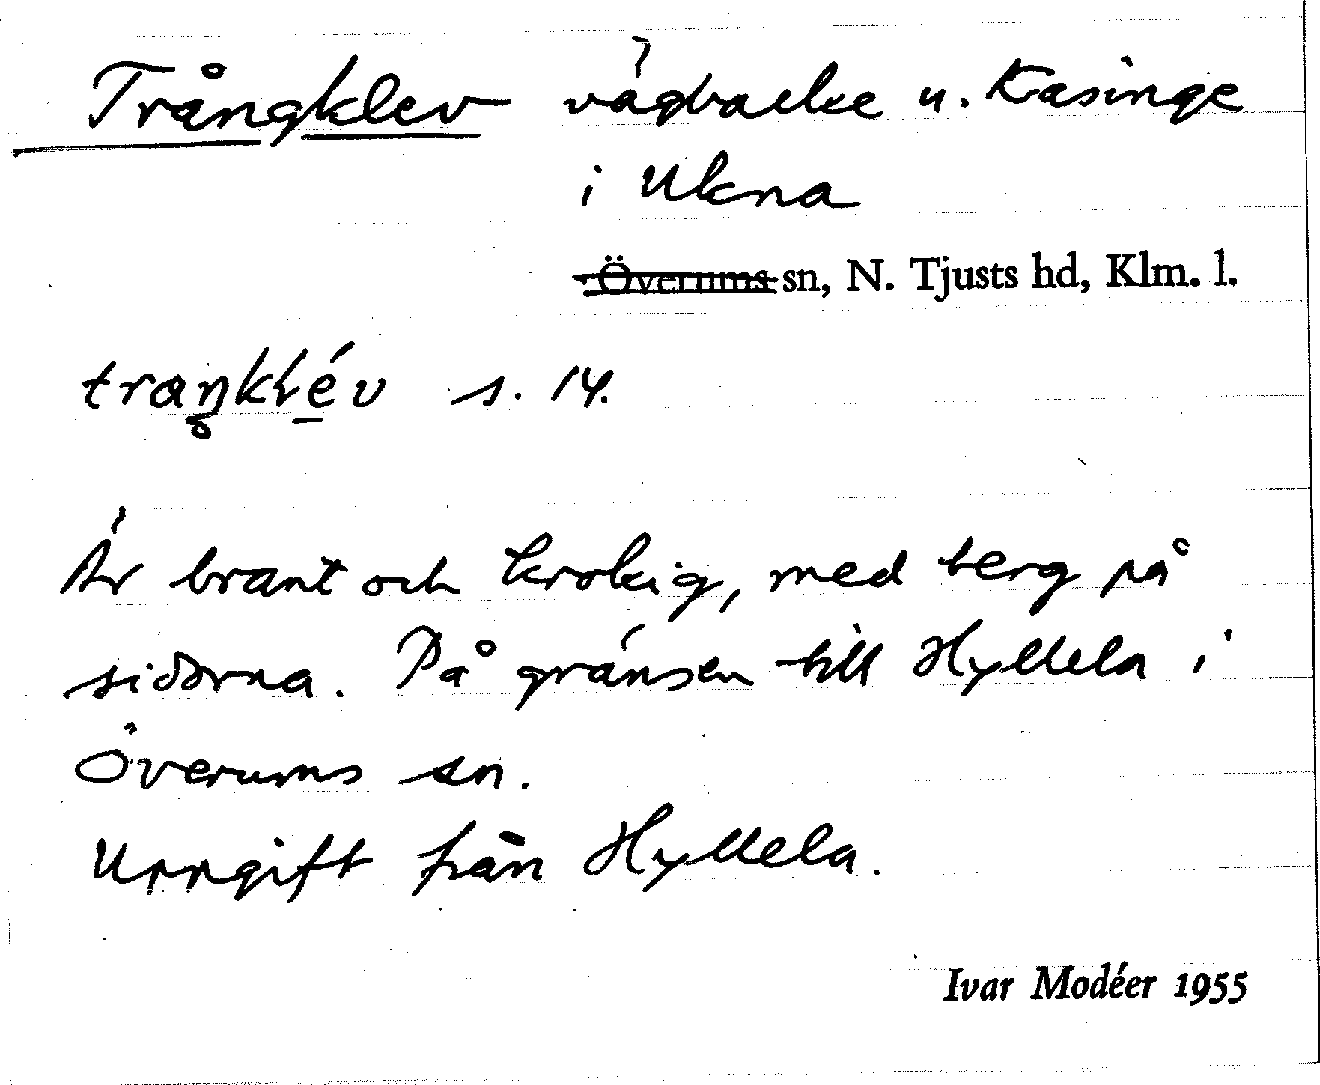 Trångklev vägbacke u. Kasinge
i Ukna
Överums sn, N. Tjusts hd, Klm. l.
s. 14.
Är brant och krokig, med berg på
sidorna. På gränsen till Hyllela i
Överums sn.
Uppgift från Hyllela.
Ivar Modéer 1955